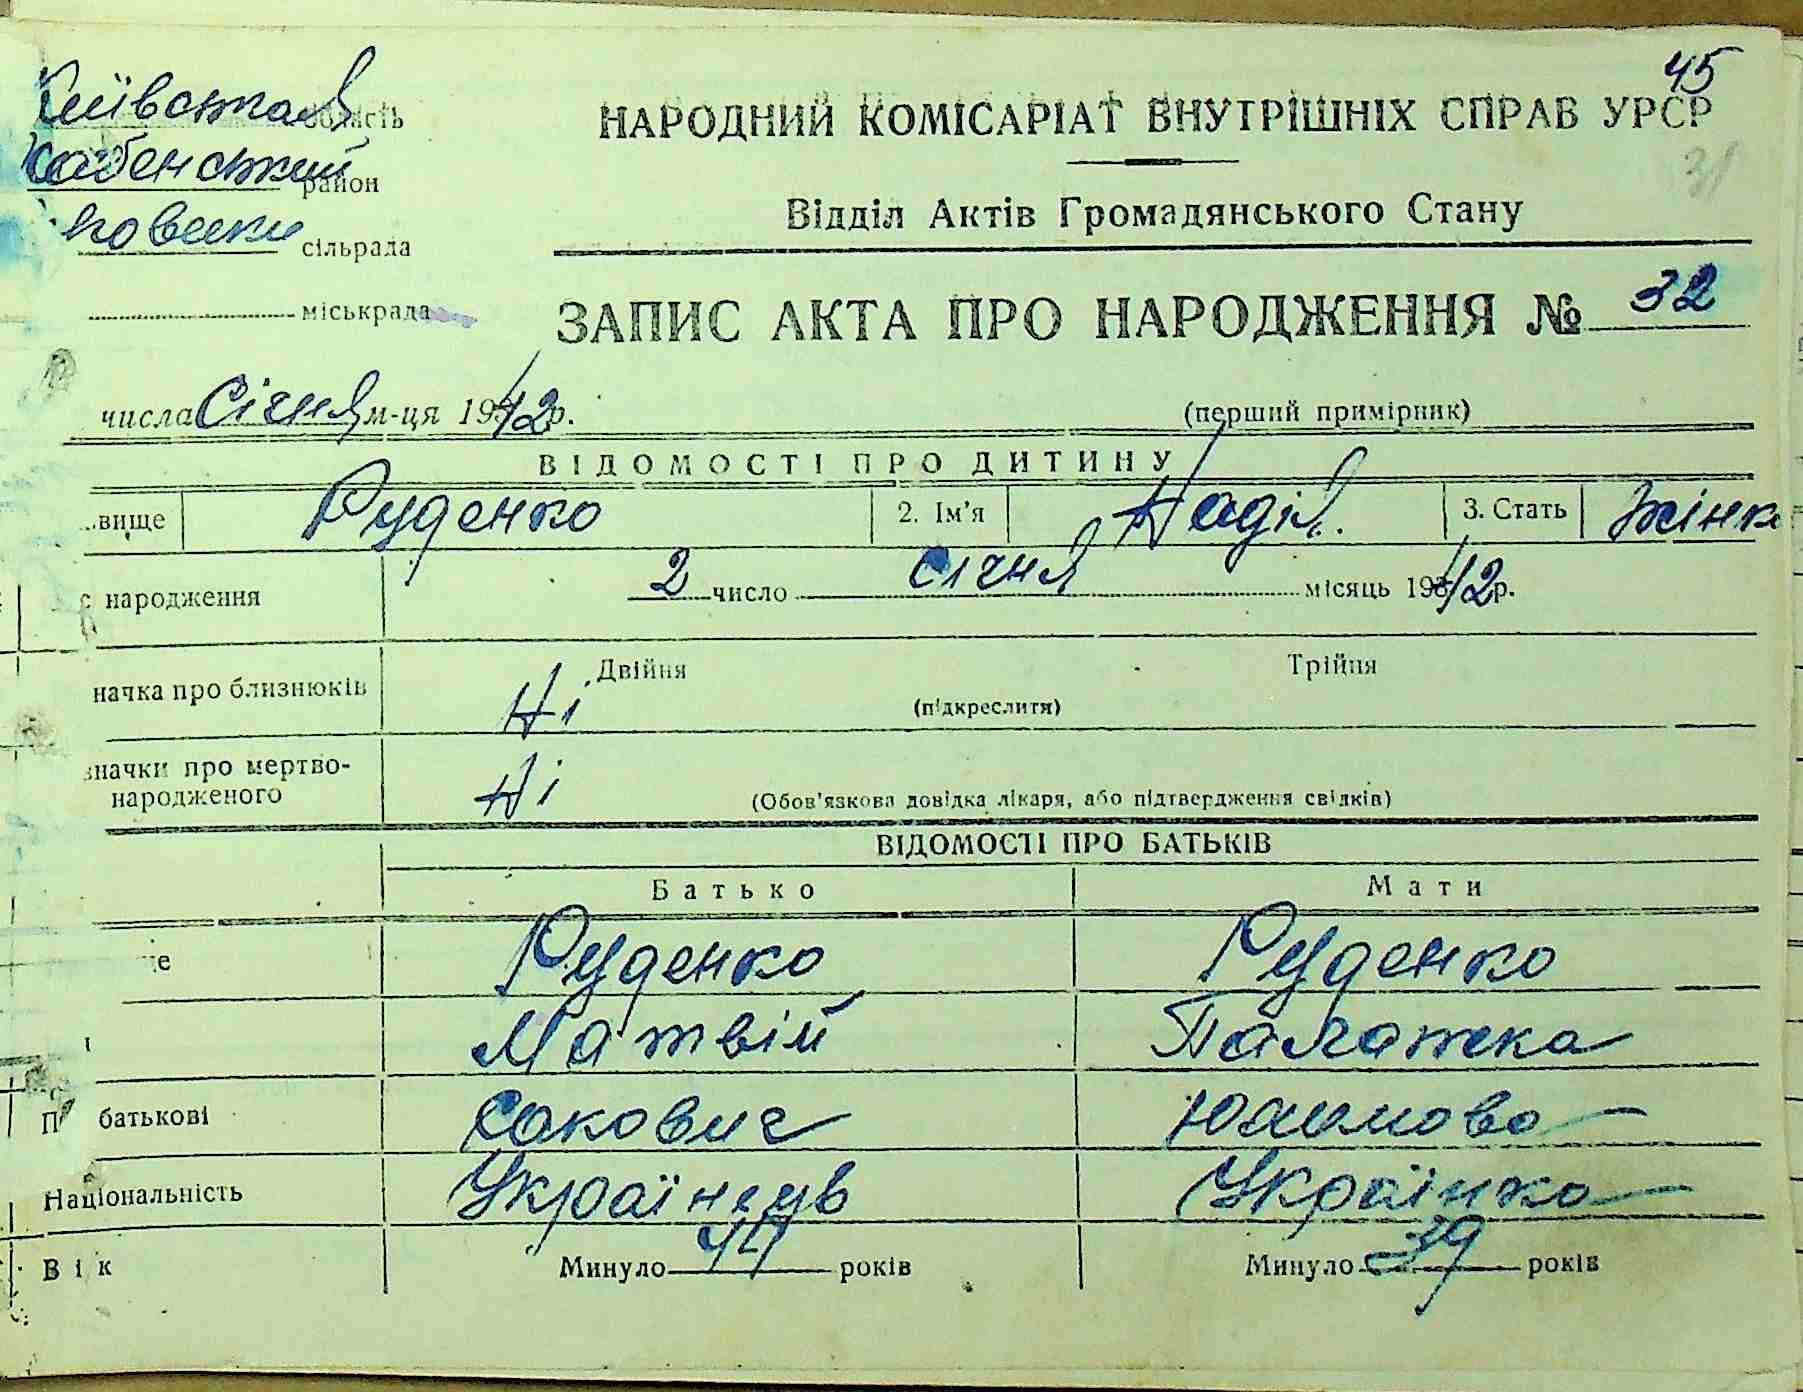 45
Київська область
НАРОДНИЙ КОМІСАРІАТ ВНУТРІШНІХ СПРАВ УРСР
район
31
Відділ Актів Громадянського Стану
сільрада
міськрада
ЗАПИС АКТА ПРО НАРОДЖЕННЯ № 32
числа Січня м-ця 1942 р.
(перший примірник)
ВІДОМОСТІ ПРО ДИТИНУ
вище Руденко 2. Ім'я Надія. 3. Стать Жінк
народження 2 число Січня місяць 1942 р.
начка про близнюків Ні Двійня Трійня
(підкреслити)
значки про мертво-
народженого Ні (Обов'язкова довідка лікаря, або підтвердження свідків)
ВІДОМОСТІ ПРО БАТЬКІВ
Батько Мати
це Руденко Руденко
Матвій Палажка
По батькові Сакович Юхимова
Національність Українець Українка
Вік Минуло 44 років Минуло 39 років